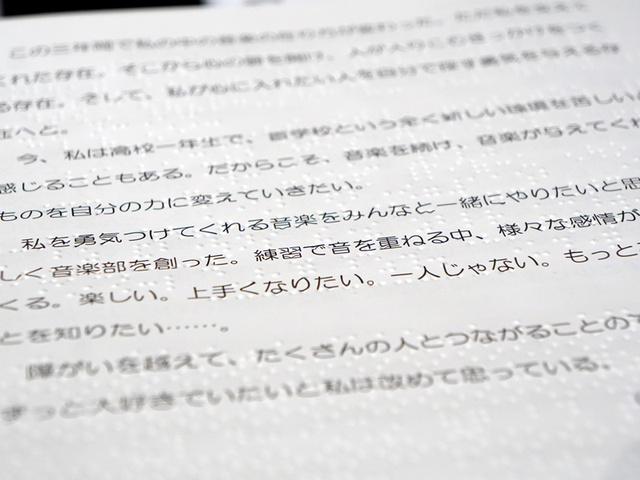 この三年間で私の中の音楽の在り方が変わった。ただ私を支えて
くれた存在。そこから心の扉を開け、人が入りこむきっかけをつく
る存在。そして、私が心に入れたい人を自分で探す勇気を与える存
在へと。
今、私は高校一年生で、盲学校という全く新しい環境を苦しいと
感じることもある。だからこそ、音楽を続け、音楽が与えてくれ
ものを自分の力に変えていきたい。
私を勇気つけてくれる音楽をみんなと一緒にやりたいと思
しく音楽部を創った。練習で音を重ねる中、様々な感情が
くる。楽しい。上手くなりたい。一人じゃない。もっと
とを知りたい……。
障がいを越えて、たくさんの人とつながることので
ずっと大好きでいたいと私は改めて思っている。